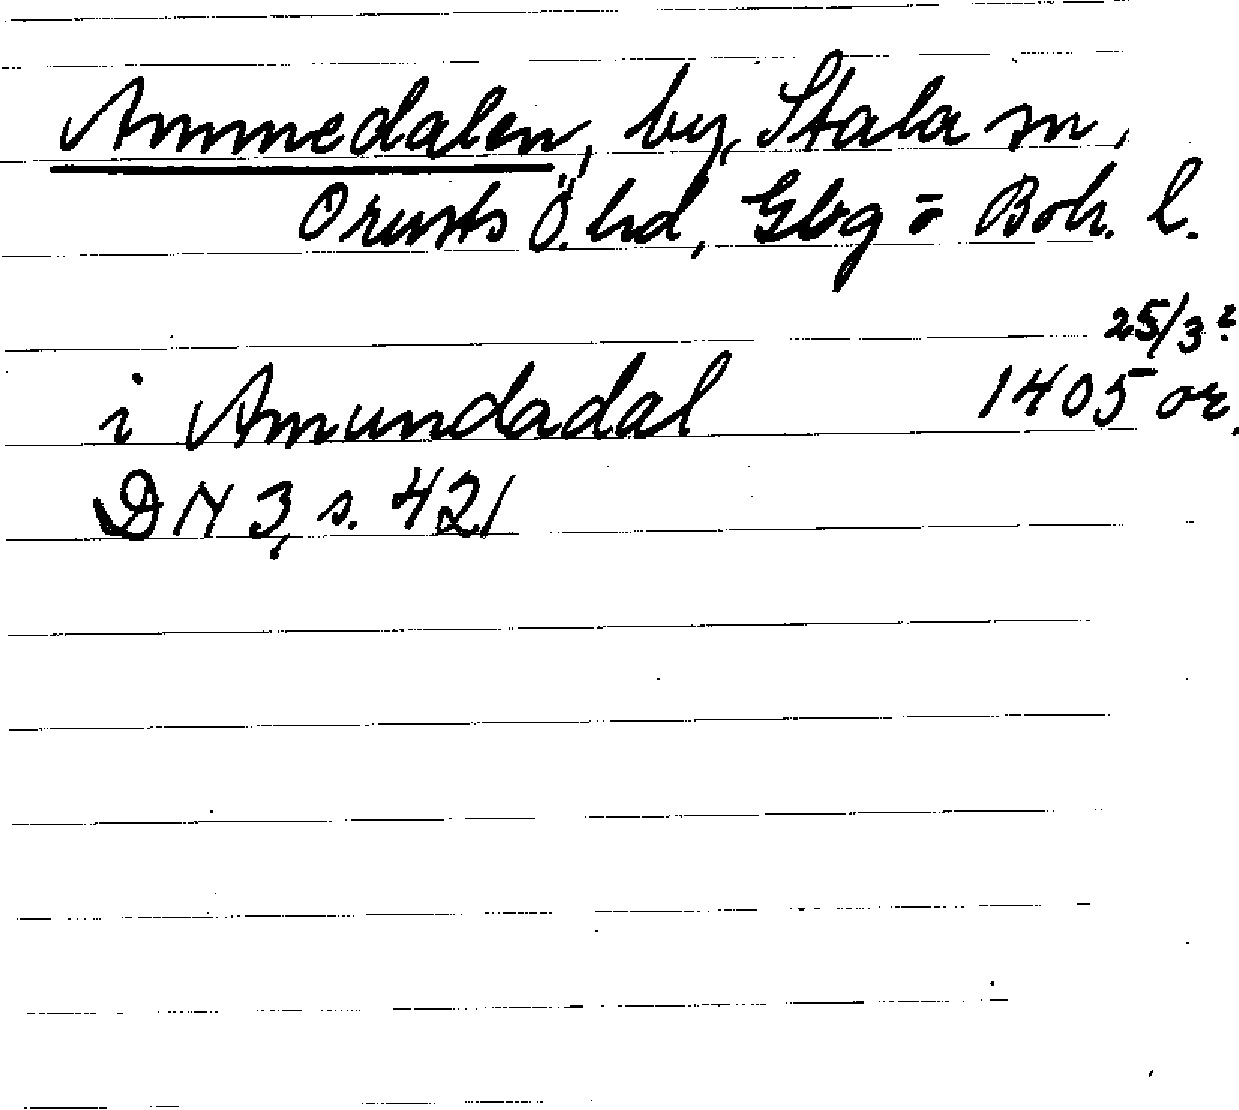 Ammedalen, by, Stala sn,
Orusts Ö. hd, Gbg o Boh. l.
25/3 ?
i Amundadal 1405 or.
DN 3, s. 421